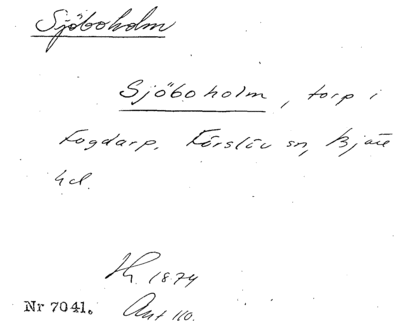 Sjöboholm
Sjöboholm, torp i
Fogdarp, Förslöv sn, Bjäre
hd.
Hr. 1874
Nr 7041. Ant 110.